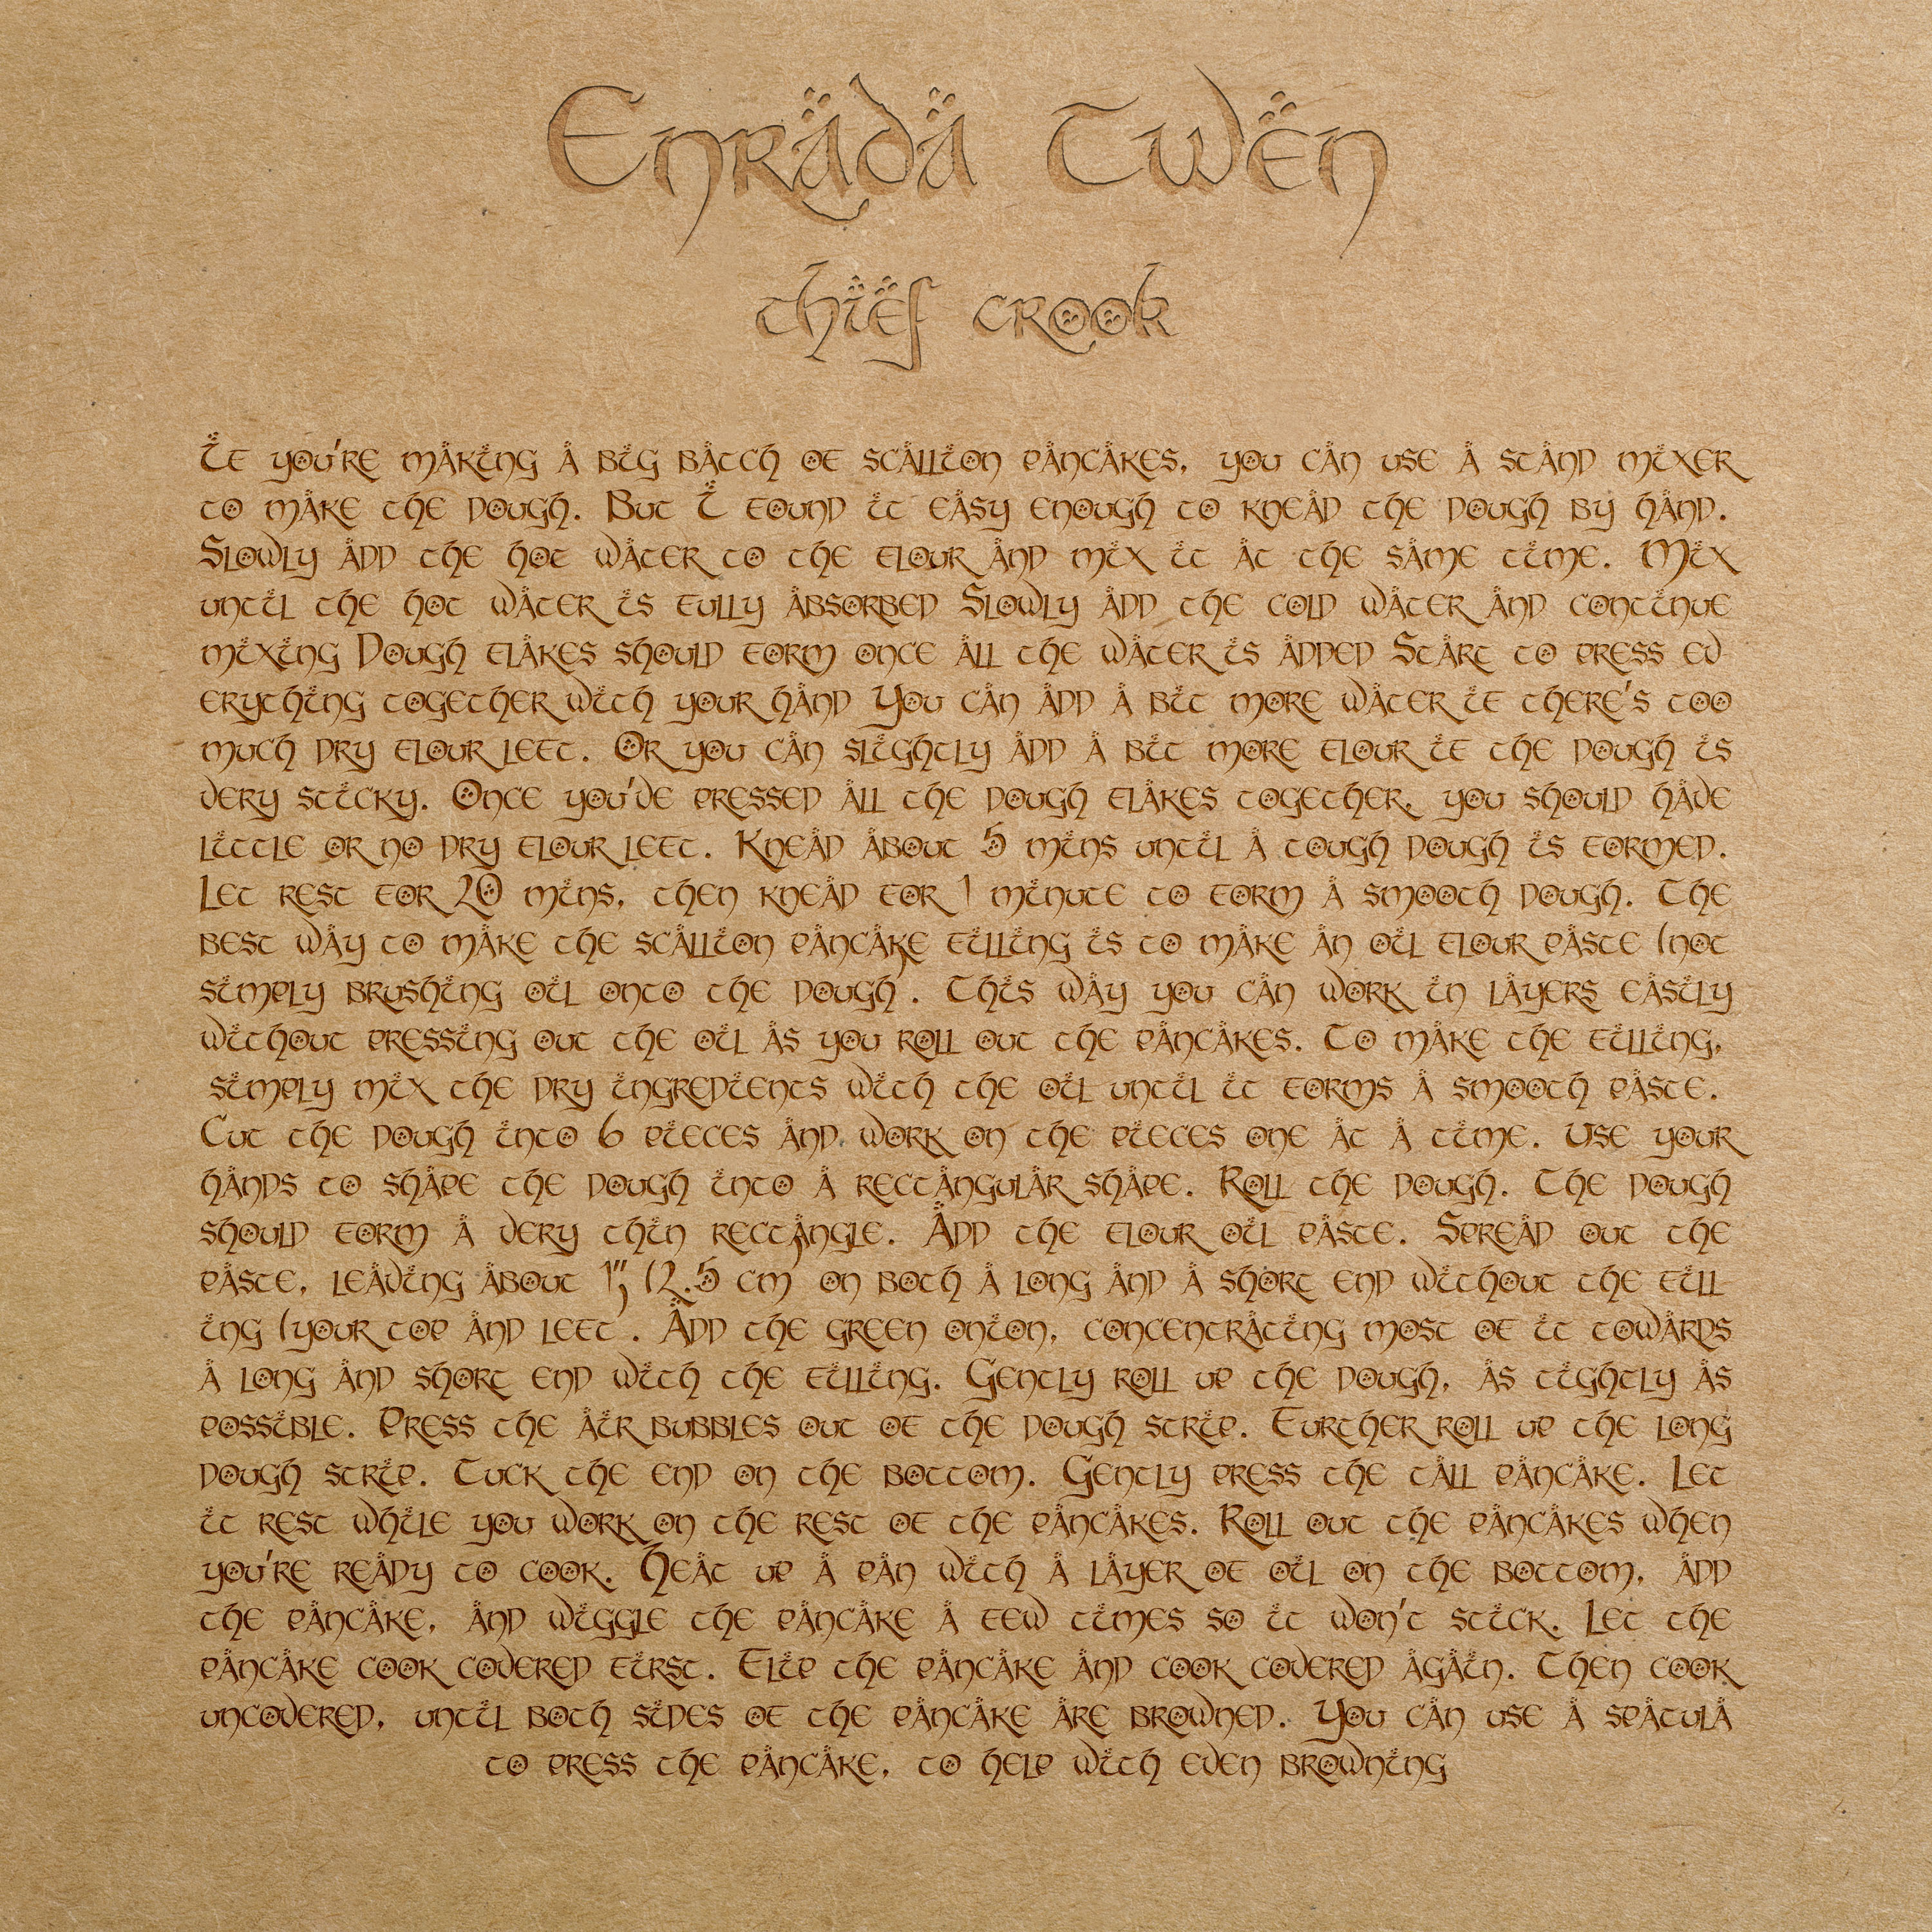 Enrada Twen
chief crook
If you're making a big batch of scallion pancakes, you can use a stand mixer
to make the dough. But I found it easy enough to knead the dough by hand.
Slowly add the hot water to the flour and mix it at the same time. Mix
until the hot water is fully absorbed Slowly add the cold water and continue
mixing Dough flakes should form once all the water is added Start to press ev
erything together with your hand You can add a bit more water if there's too
much dry flour left. Or you can slightly add a bit more flour if the dough is
very sticky. Once you've pressed all the dough flakes together, you should have
little or no dry flour left. Knead about 5 mins until a tough dough is formed.
Let rest for 20 mins, then knead for 1 minute to form a smooth dough. The
best way to make the scallion pancake filling is to make an oil flour paste (not
simply brushing oil onto the dough). This way you can work in layers easily
without pressing out the oil as you roll out the pancakes. To make the filling,
simply mix the dry ingredients with the oil until it forms a smooth paste.
Cut the dough into 6 pieces and work on the pieces one at a time. Use your
hands to shape the dough into a rectangular shape. Roll the dough. The dough
should form a very thin rectangle. Add the flour oil paste. Spread out the
paste, leaving about 1" (2.5 cm) on both a long and a short end without the fill
ing (your top and left). Add the green onion, concentrating most of it towards
a long and short end with the filling. Gently roll up the dough, as tightly as
possible. Press the air bubbles out of the dough strip. Further roll up the long
dough strip. Tuck the end on the bottom. Gently press the tall pancake. Let
it rest while you work on the rest of the pancakes. Roll out the pancakes when
you're ready to cook. Heat up a pan with a layer of oil on the bottom, add
the pancake, and wiggle the pancake a few times so it won't stick. Let the
pancake cook covered first. Flip the pancake and cook covered again. Then cook
uncovered, until both sides of the pancake are browned. You can use a spatula
to press the pancake, to help with even browning